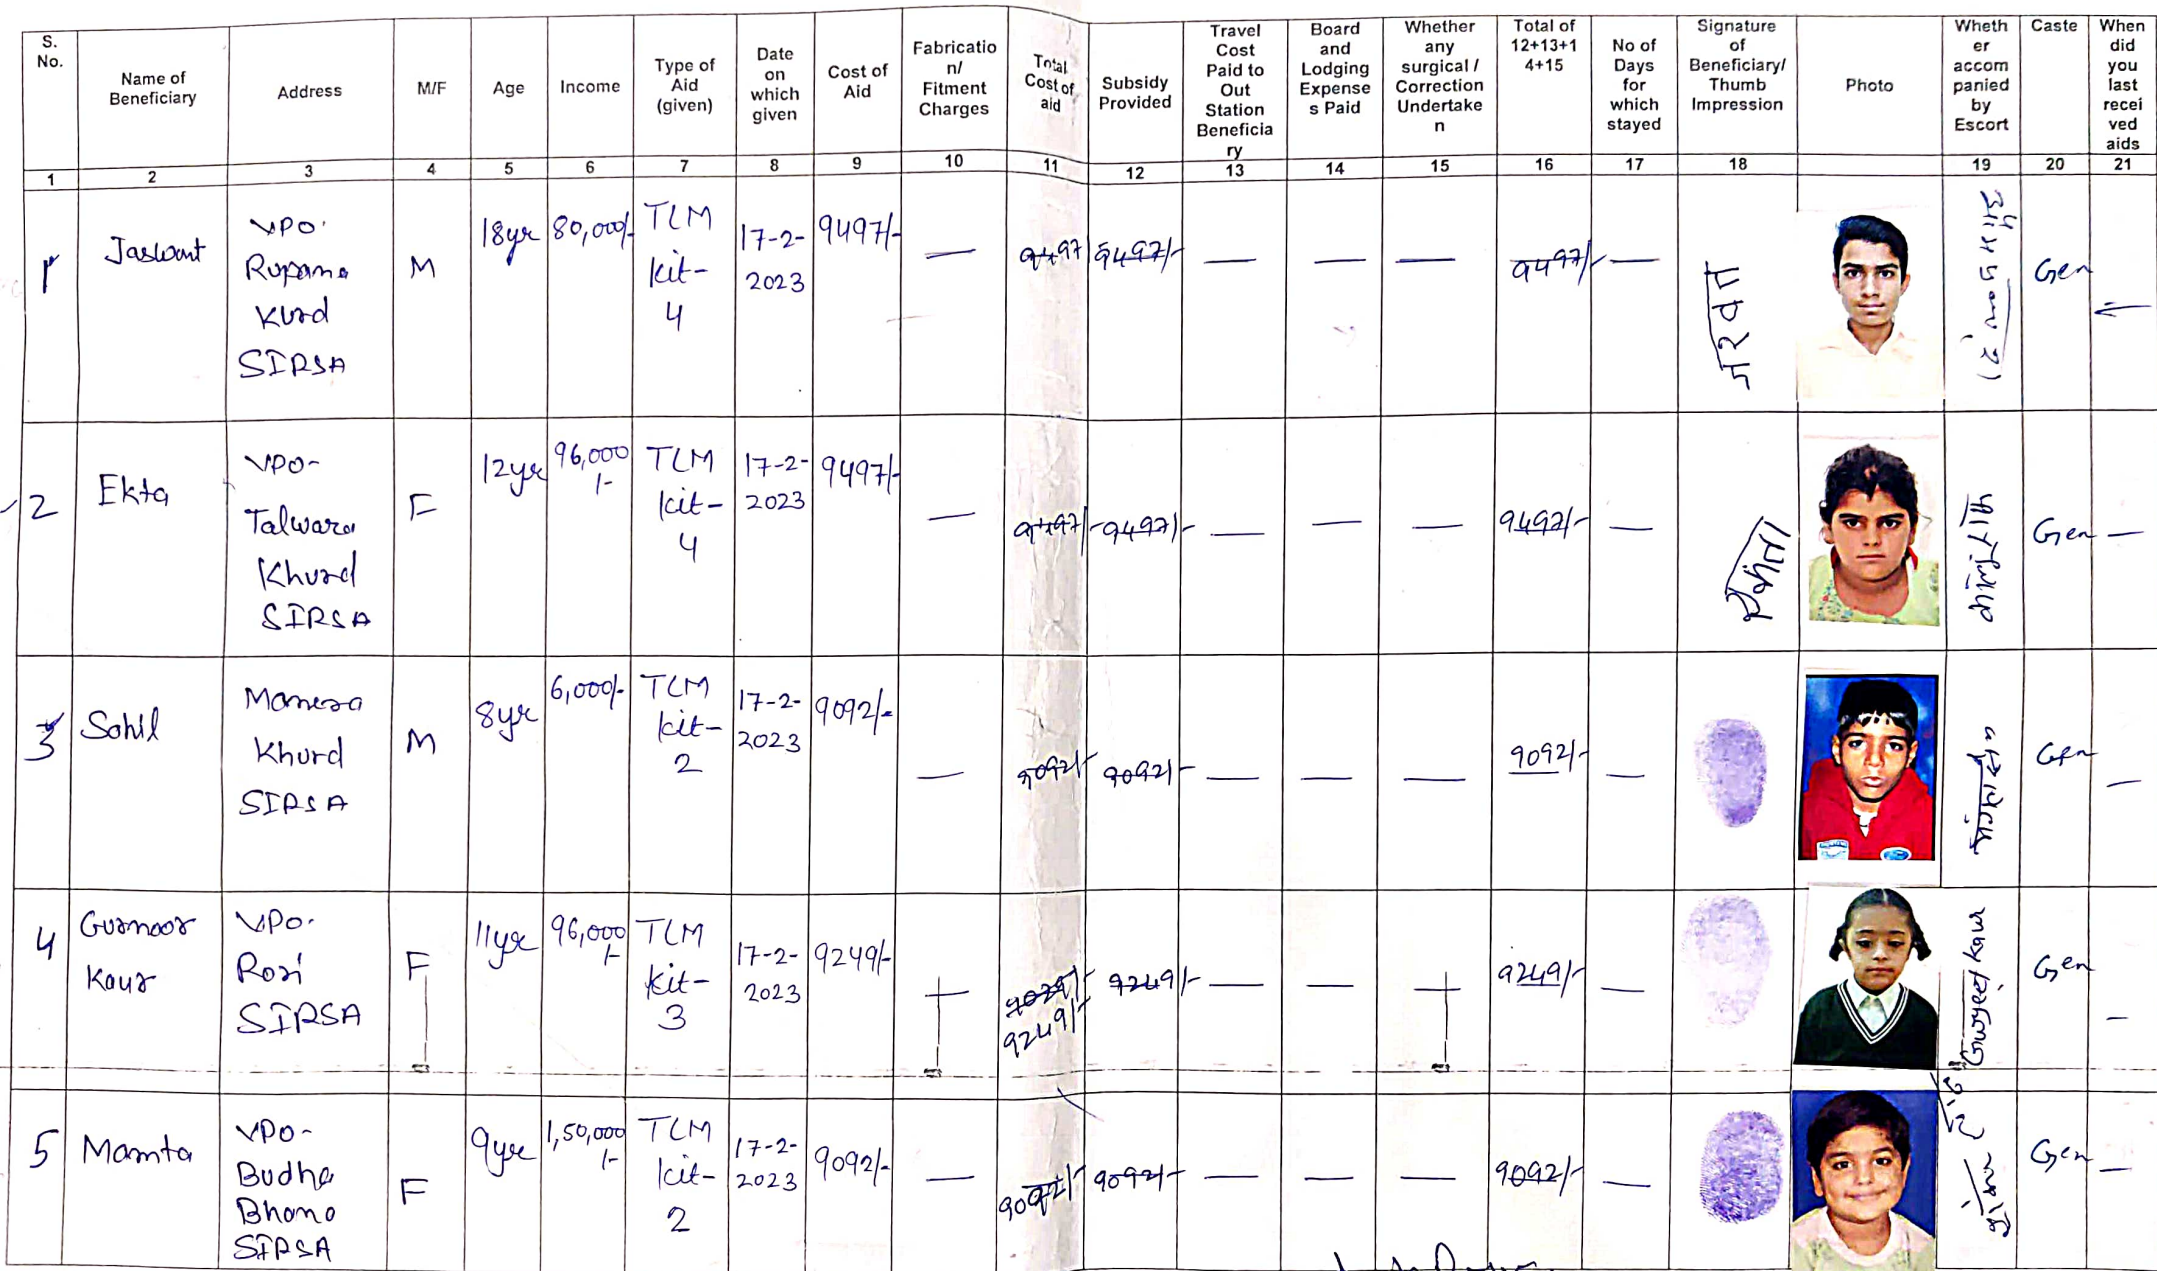 S. No.
Name of Beneficiary
Address
M/F
Age
Income
Type of Aid (given)
Date on which given
Cost of Aid
Fabricatio n/ Fitment Charges
Total Cost of aid
Subsidy Provided
Travel Cost Paid to Out Station Beneficia ry
Board and Lodging Expense s Paid
Whether any surgical / Correction Undertake n
Total of 12+13+1 4+15
No of Days for which stayed
Signature of Beneficiary/ Thumb Impression
Photo
Wheth er accom panied by Escort
Caste
When did you last recei ved aids
1 2 3 4 5 6 7 8 9 10 11 12 13 14 15 16 17 18 19 20 21
1 Jaswant VPO. Rupana Kurd SIRSA M 18yr 80,000/- TLM kit-4 17-2-2023 9497/- — 9497 9497/- — — — 9497/- — Gen
2 Ekta VPO- Talwara Khurd SIRSA F 12yr 96,000/- TLM kit-4 17-2-2023 9497/- — 9497/- 9497/- — — — 9497/- — Gen —
3 Sohil Khurd SIRSA M 8yr 6,000/- TLM kit-2 17-2-2023 9092/- — 9092/- 9092/- — — — 9092/- — Gen —
4 Gurnoor Kaur VPO. Rori SIRSA F 11yr 96,000/- TLM kit-3 17-2-2023 9249/- — 9249/- 9249/- — — — 9249/- — Gurpreet Kaur Gen —
5 Mamta VPO- Budha Bhana SIRSA F 9yr 1,50,000/- TLM kit-2 17-2-2023 9092/- — 9092/- 9092/- — — — 9092/- — Gen —